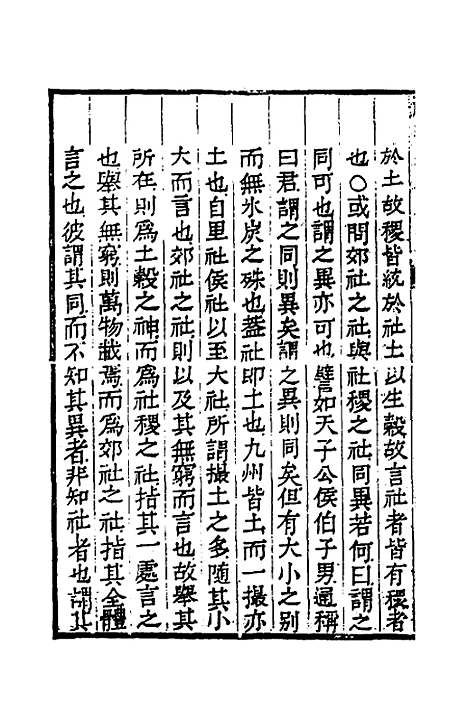 於土故稷皆統於社土以生穀故言社者皆有稷者
也○或問郊社之社與社稷之社同異若何曰謂之
同可也謂之異亦可也譬如天子公侯伯子男通稱
曰君謂之同則異矣謂之異則同矣但有大小之別
而無氷炭之殊也蓋社即土也九州皆土而一撮亦
土也自里社侯社以至大社所謂撮土之多隨其小
大而言也郊社之社則以及其無窮而言也故舉其
所在則爲土穀之神而爲社稷之社指其一處言之
也舉其無窮則萬物載焉而爲郊社之社指其全體
言之也彼謂其同而不知其異者非知社者也謂其